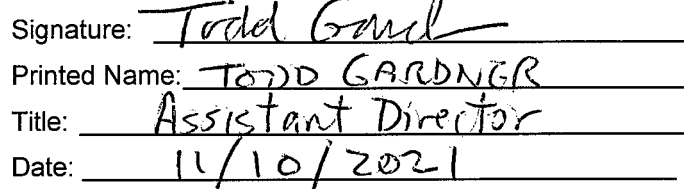 Signature: Todd Gard
Printed Name: TODD GARDNER
Title: Assistant Director
Date: 11/10/2021